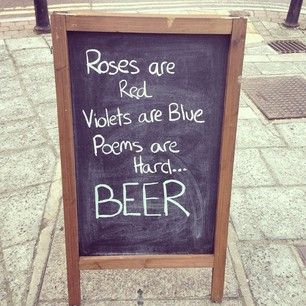 Roses are
Red
Violets are Blue
Poems are
Hard...
BEER